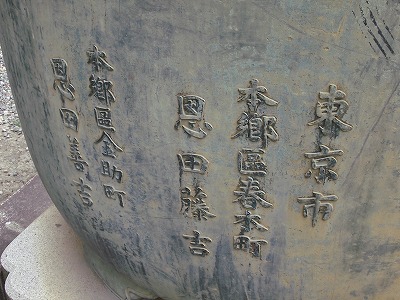 東京市
本郷區春木町
恩田藤吉
本郷區金助町
恩田善吉